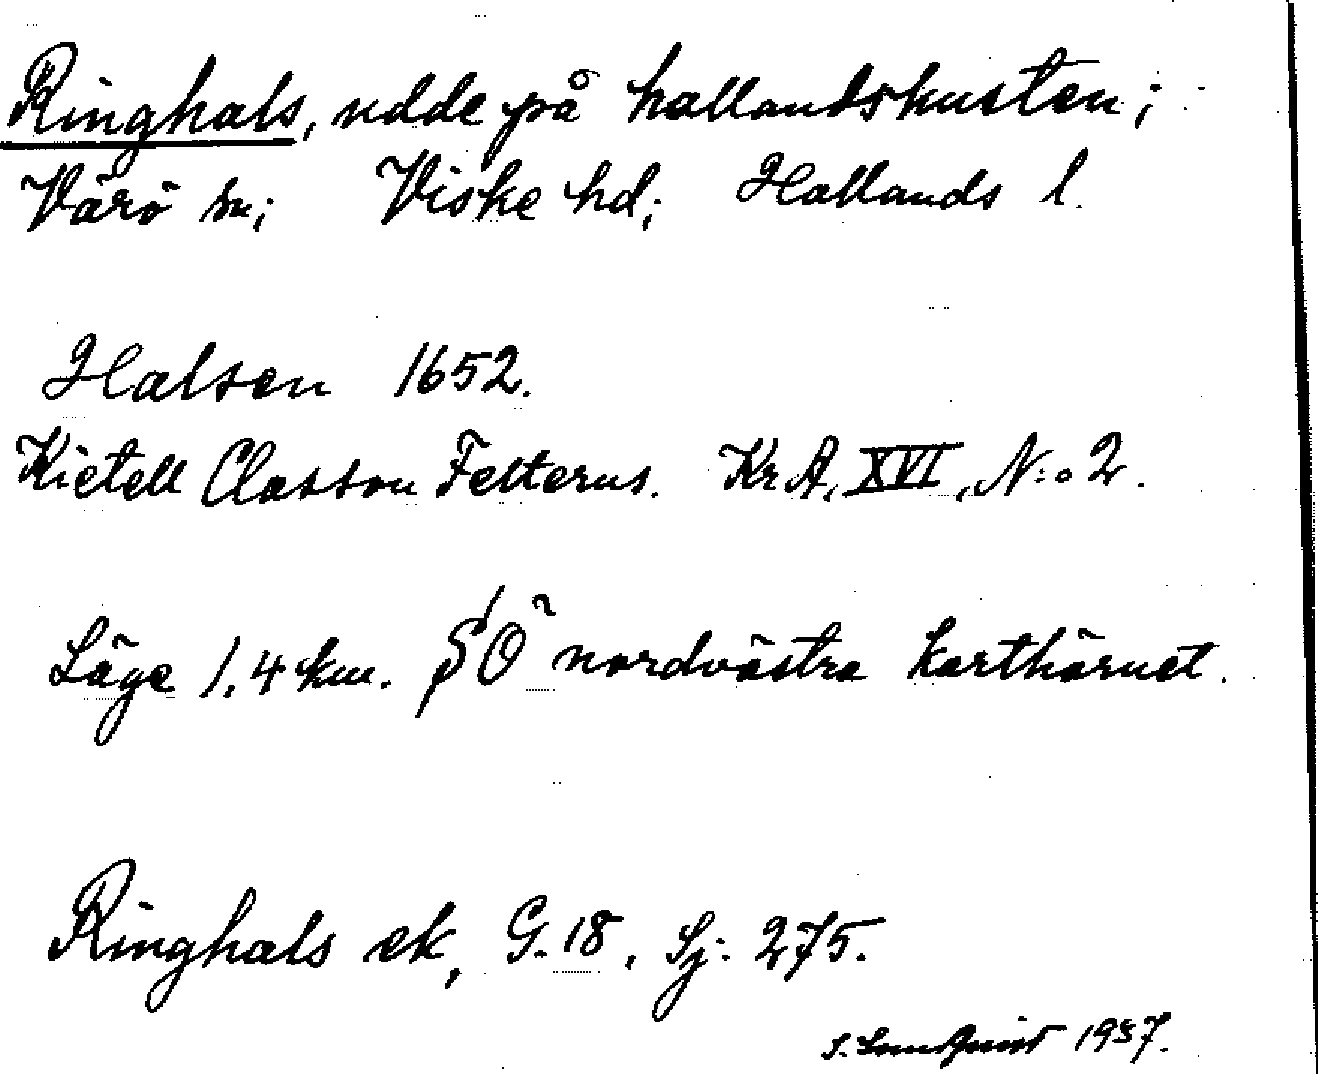 Ringhals, udde på hallandskusten;
Värö sn; Viske hd; Hallands l.
Halsen 1652.
Kietell Classon Felterus. KrA, XVI, N:o 2.
Läge 1,4 km. SO nordvästra karthörnet.
Ringhals ek, G. 18, Sj: 275.
1937.